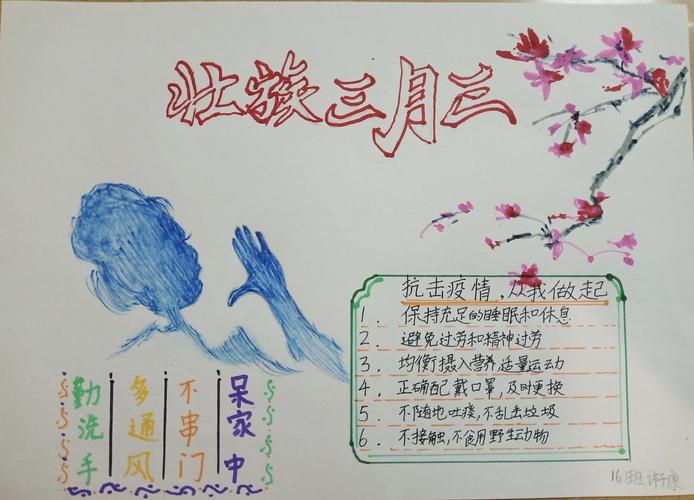 壮族三月三
抗击疫情,从我做起
1. 保持充足的睡眠和休息
2. 避免过劳和精神过劳
3. 均衡摄入营养适量运动
4. 正确配戴口罩,及时更换
5. 不随地吐痰,不乱丢垃圾
6. 不接触,不食用野生动物
勤洗手
多通风
不串门
呆家中
16班